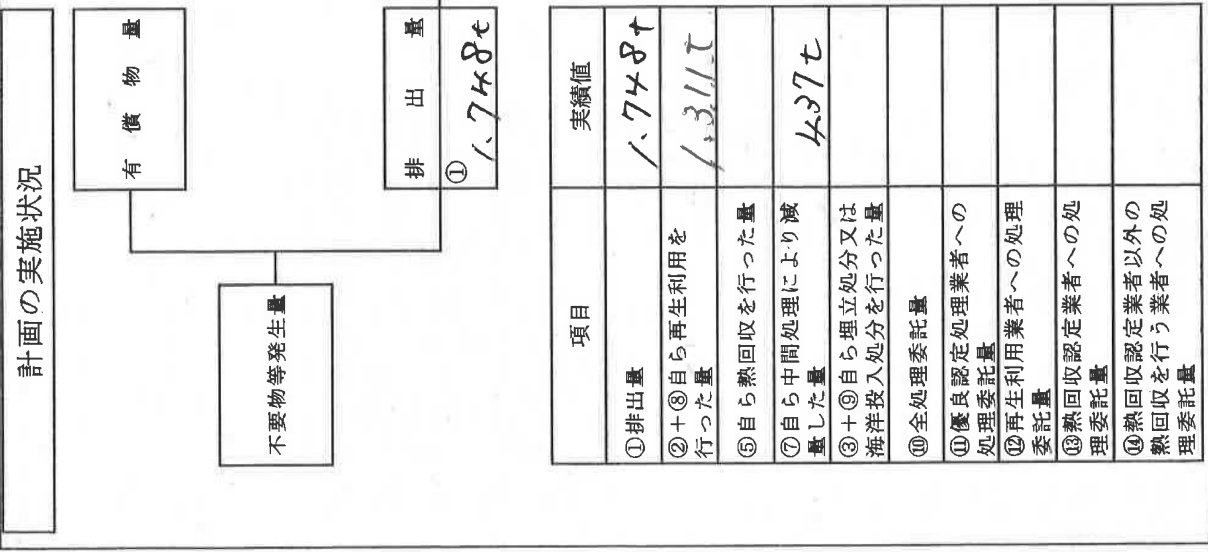 計画の実施状況
有償物量
不要物等発生量
排出量
①
1、748t
項目
実績値
①排出量
1、748t
②+⑧自ら再生利用を
行った量
1、311t
⑤自ら熱回収を行った量
⑦自ら中間処理により減
量した量
437t
③+⑨自ら埋立処分又は
海洋投入処分を行った量
⑩全処理委託量
⑪優良認定処理業者への
処理委託量
⑫再生利用業者への処理
委託量
⑬熱回収認定業者への処
理委託量
⑭熱回収認定業者以外の
熱回収を行う業者への処
理委託量